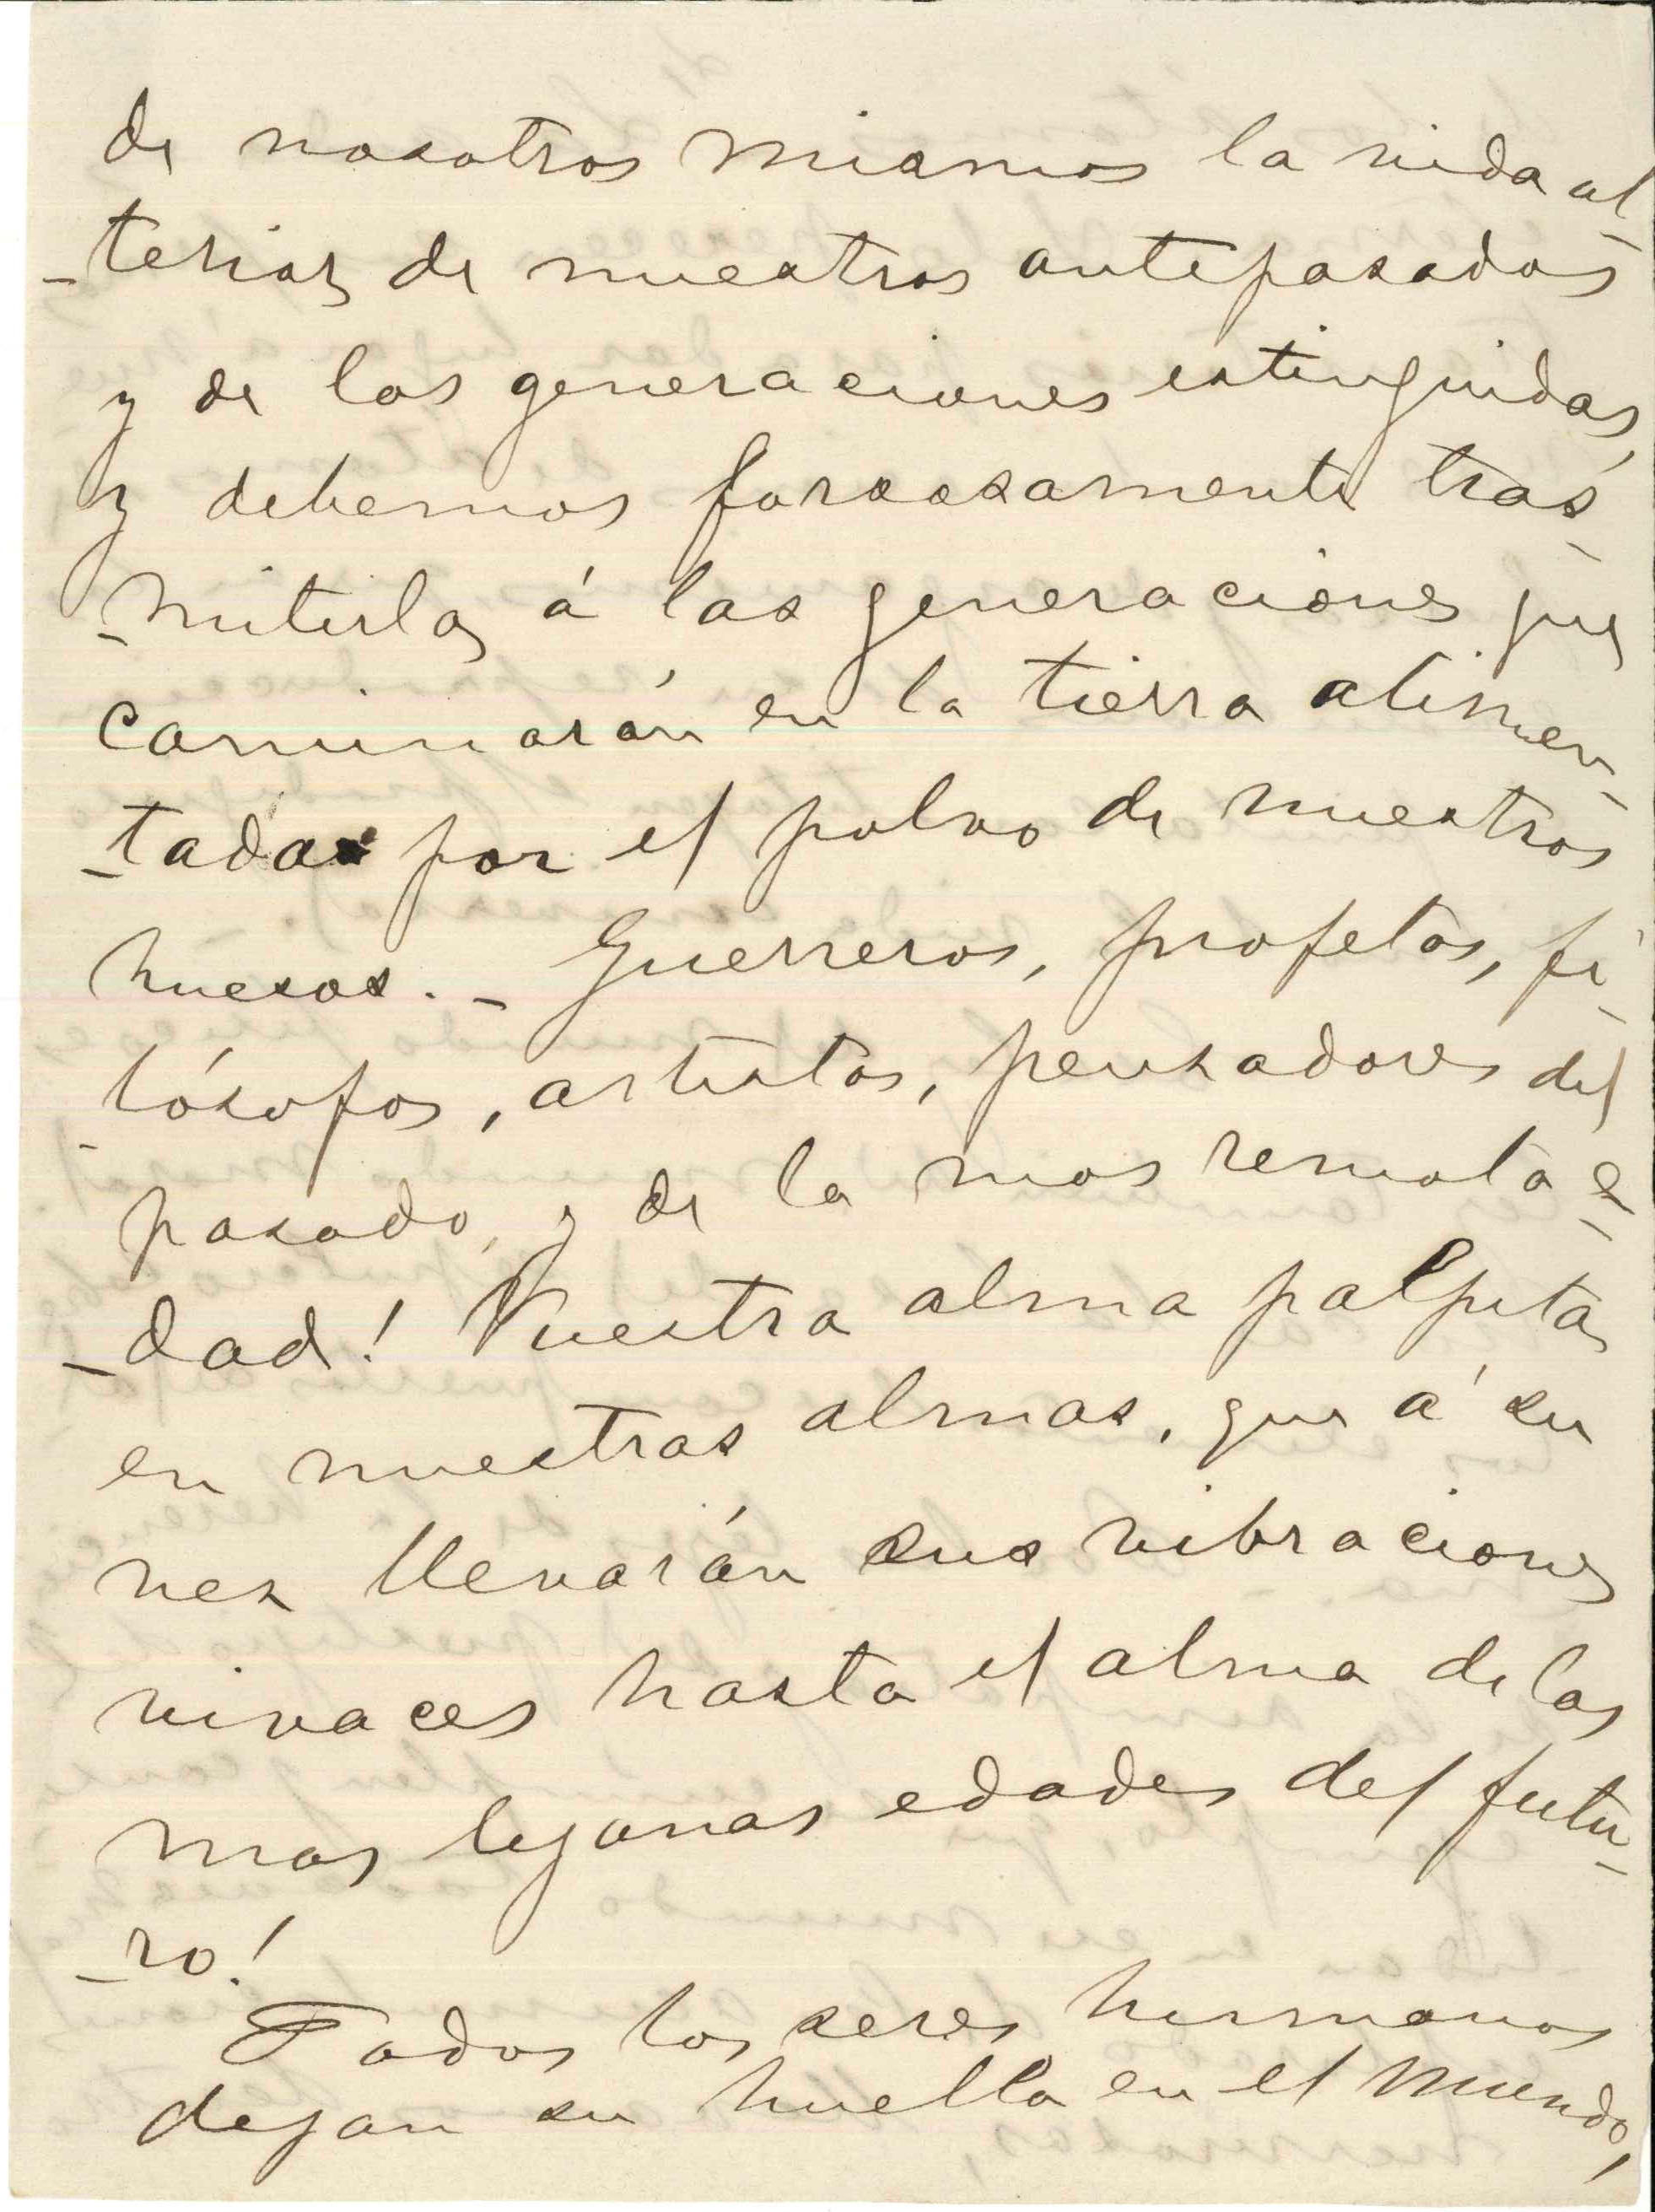 de nosotros mismos la vida ul-
-terior de nuestros antepasados
y de las generaciones estinguidas,
y debemos forzosamente tras-
-mitirla á las generaciones que
caminarán en la tierra alimen-
-tada por el polvo de nuestros
huesos. - Guerreros, profetas, fi-
-lósofos, artistas, pensadores del
pasado, y de la mas remota e-
-dad! Vuestra alma palpita
en nuestras almas, que á su
vez llevarán sus vibraciones
vivaces hasta el alma de las
mas lejanas edades del futu-
-ro!
Todos los seres humanos
dejan su huella en el mundo,